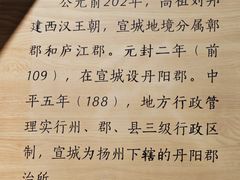 公元前202年，高祖刘邦
建西汉王朝，宣城地境分属鄣
郡和庐江郡。元封二年（前
109），在宣城设丹阳郡。中
平五年（188），地方行政管
理实行州、郡、县三级行政区
制，宣城为扬州下辖的丹阳郡
治所